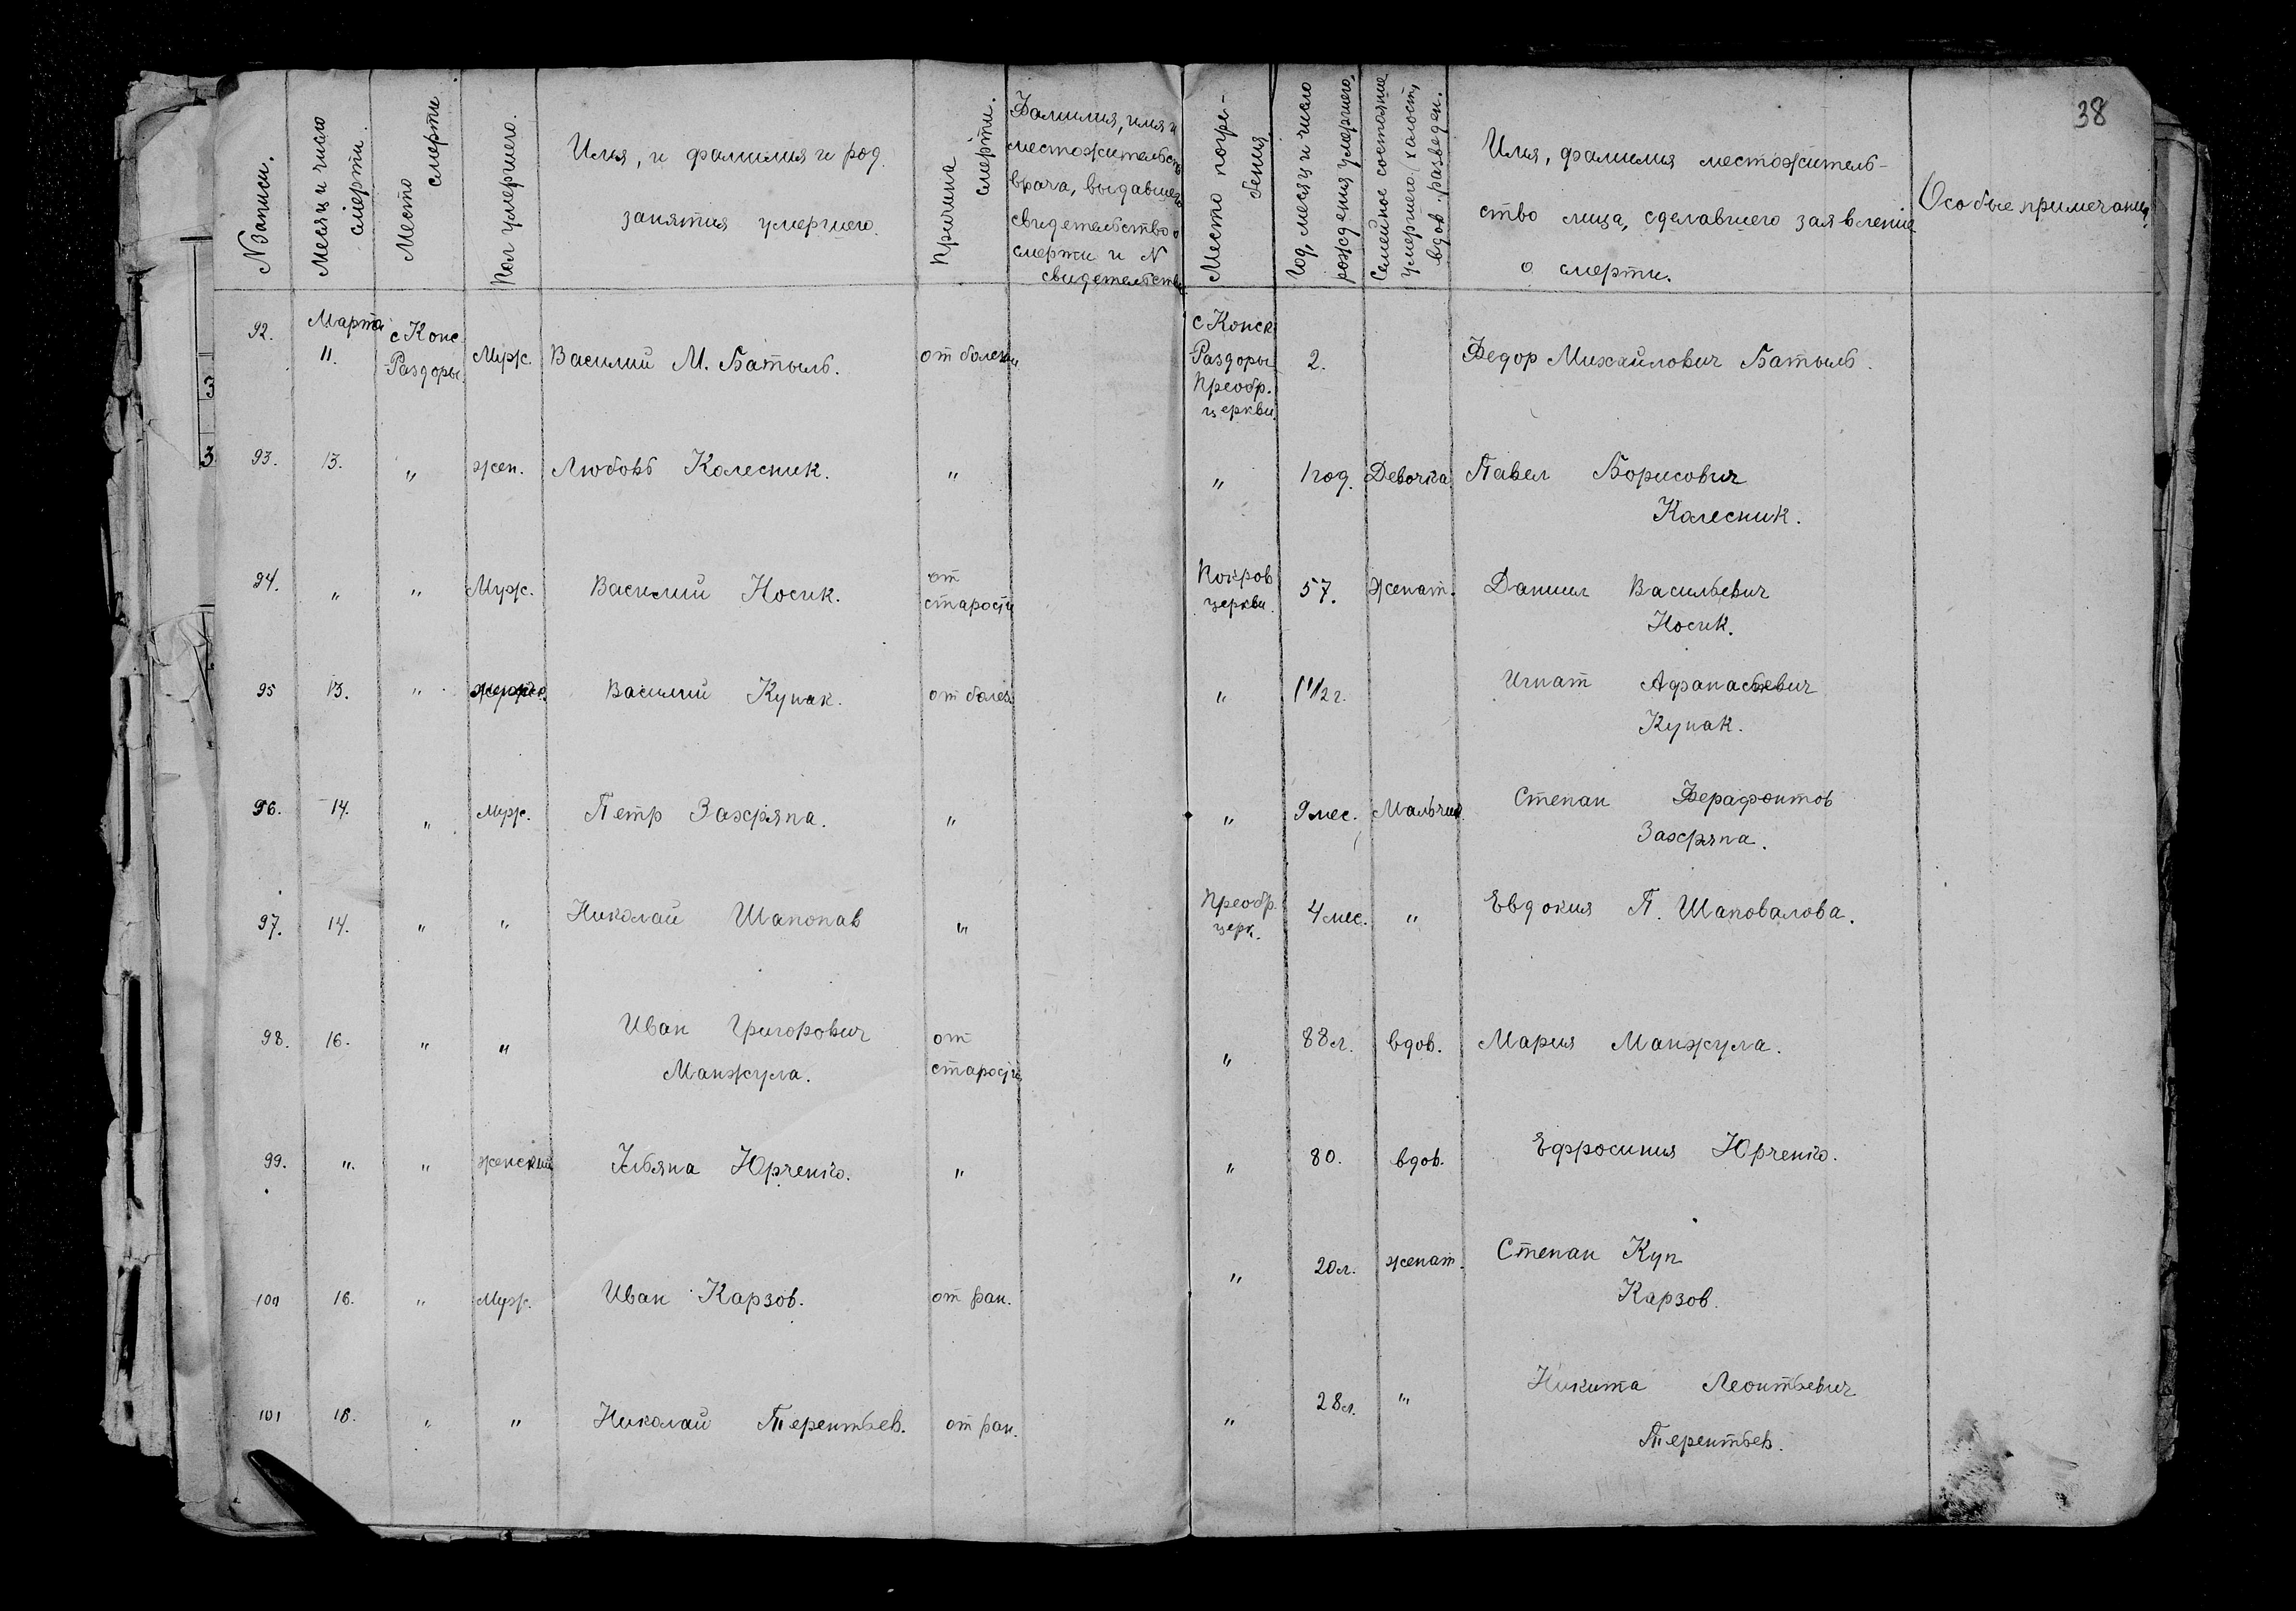 38
N Записи.
Месяц и число смерти.
Место смерти
Пол умершего.
Имя, и фамилия и род
занятия умершего.
Причина смерти.
Фамилия, имя и
местожительств
врача, выдавшего
свидетельство о
смерти и N
свидетельства
Место погре-
бения
Год, месяц и число
рождения умершего.
Семейное состояние
умершего, холост,
вдов. разведен.
Имя, фамилия местожитель-
ство лица, сделавшего заявление
о смерти.
Особые примечания.
92. Марта 11. с Конс. Раздоры. Муж. Василий М. Батыль. от болезни с Конск Раздоры Преобр. церкви. 2. Федор Михайлович Батыль.
93. 13. " жен. Любовь Колесник. " " 1 год. Девочка Павел Борисович
Колесник.
94. " " Муж. Василий Носик. от старости Покров церкви. 57. Женат. Даниил Васильевич
Носик.
95 13. " Василий Купак. от болез. " 1 1/2 г. Игнат Афанасьевич
Купак.
96. 14. " Муж. Петр Захряпа. " " 9 мес. Мальчик Степан Ферафонтов
Захряпа.
97. 14. " " Николай Шапопав " Преобр. церк. 4 мес. " Евдокия П. Шаповалова.
98. 16. " " Иван Григорович
Манжула. от старости " 88 л. вдов. Мария Манжула.
99. " " женский Юрченко. " " 80. вдов. Ефросиния Юрченко.
100 16. " Муж. Иван Карзов. от ран. " 20 л. женат. Степан Куп
Карзов.
101 16. " " Николай Терентьев. от ран. " 28 л. " Никита Леонтьевич
Терентьев.
3
3